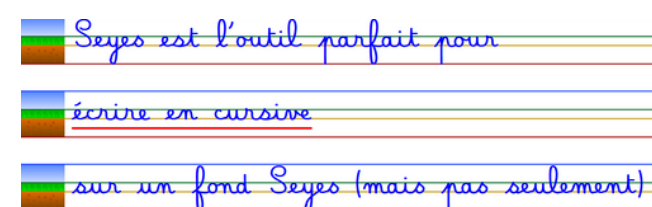 Seyes est l'outil parfait pour
écrire en cursive
sur un fond Seyes (mais pas seulement)